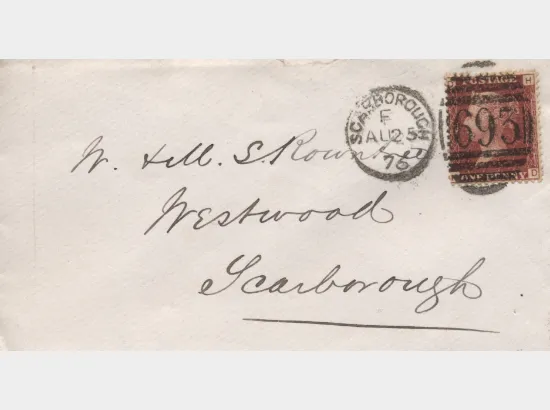 POSTAGE
H
SCARBOROUGH
F
AU 25
76
693
ONE PENNY
D
W. & M. S. Rowntree
Westwood
Scarborough